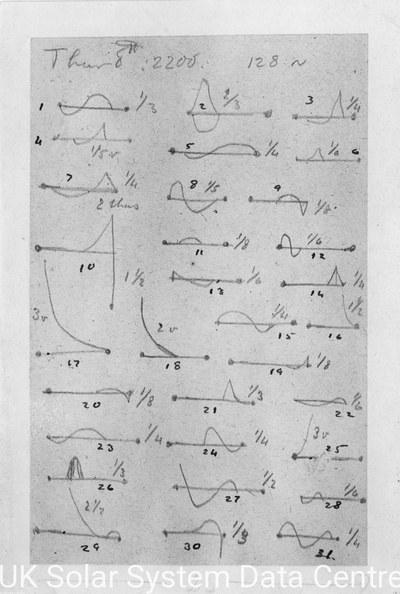 Thurs 2200. 128 ~
1 1/3 2 2/3 3 1/4
4 1/5 v 5 1/4 1/6 6
7 1/4 8 1/5 9 1/8
2 thus
10 1 1/2 11 1/8 12 1/6
13 1/6 14 1/4
3v 17 2v 18 15 1/4 16 1/2
19 1/8
20 1/8 21 1/3 22 1/6
23 1/4 24 1/4 3v 25
26 1/3 27 1/2 28 1/6
2 1/2 29 30 1/3 31. 1/4
UK Solar System Data Centre